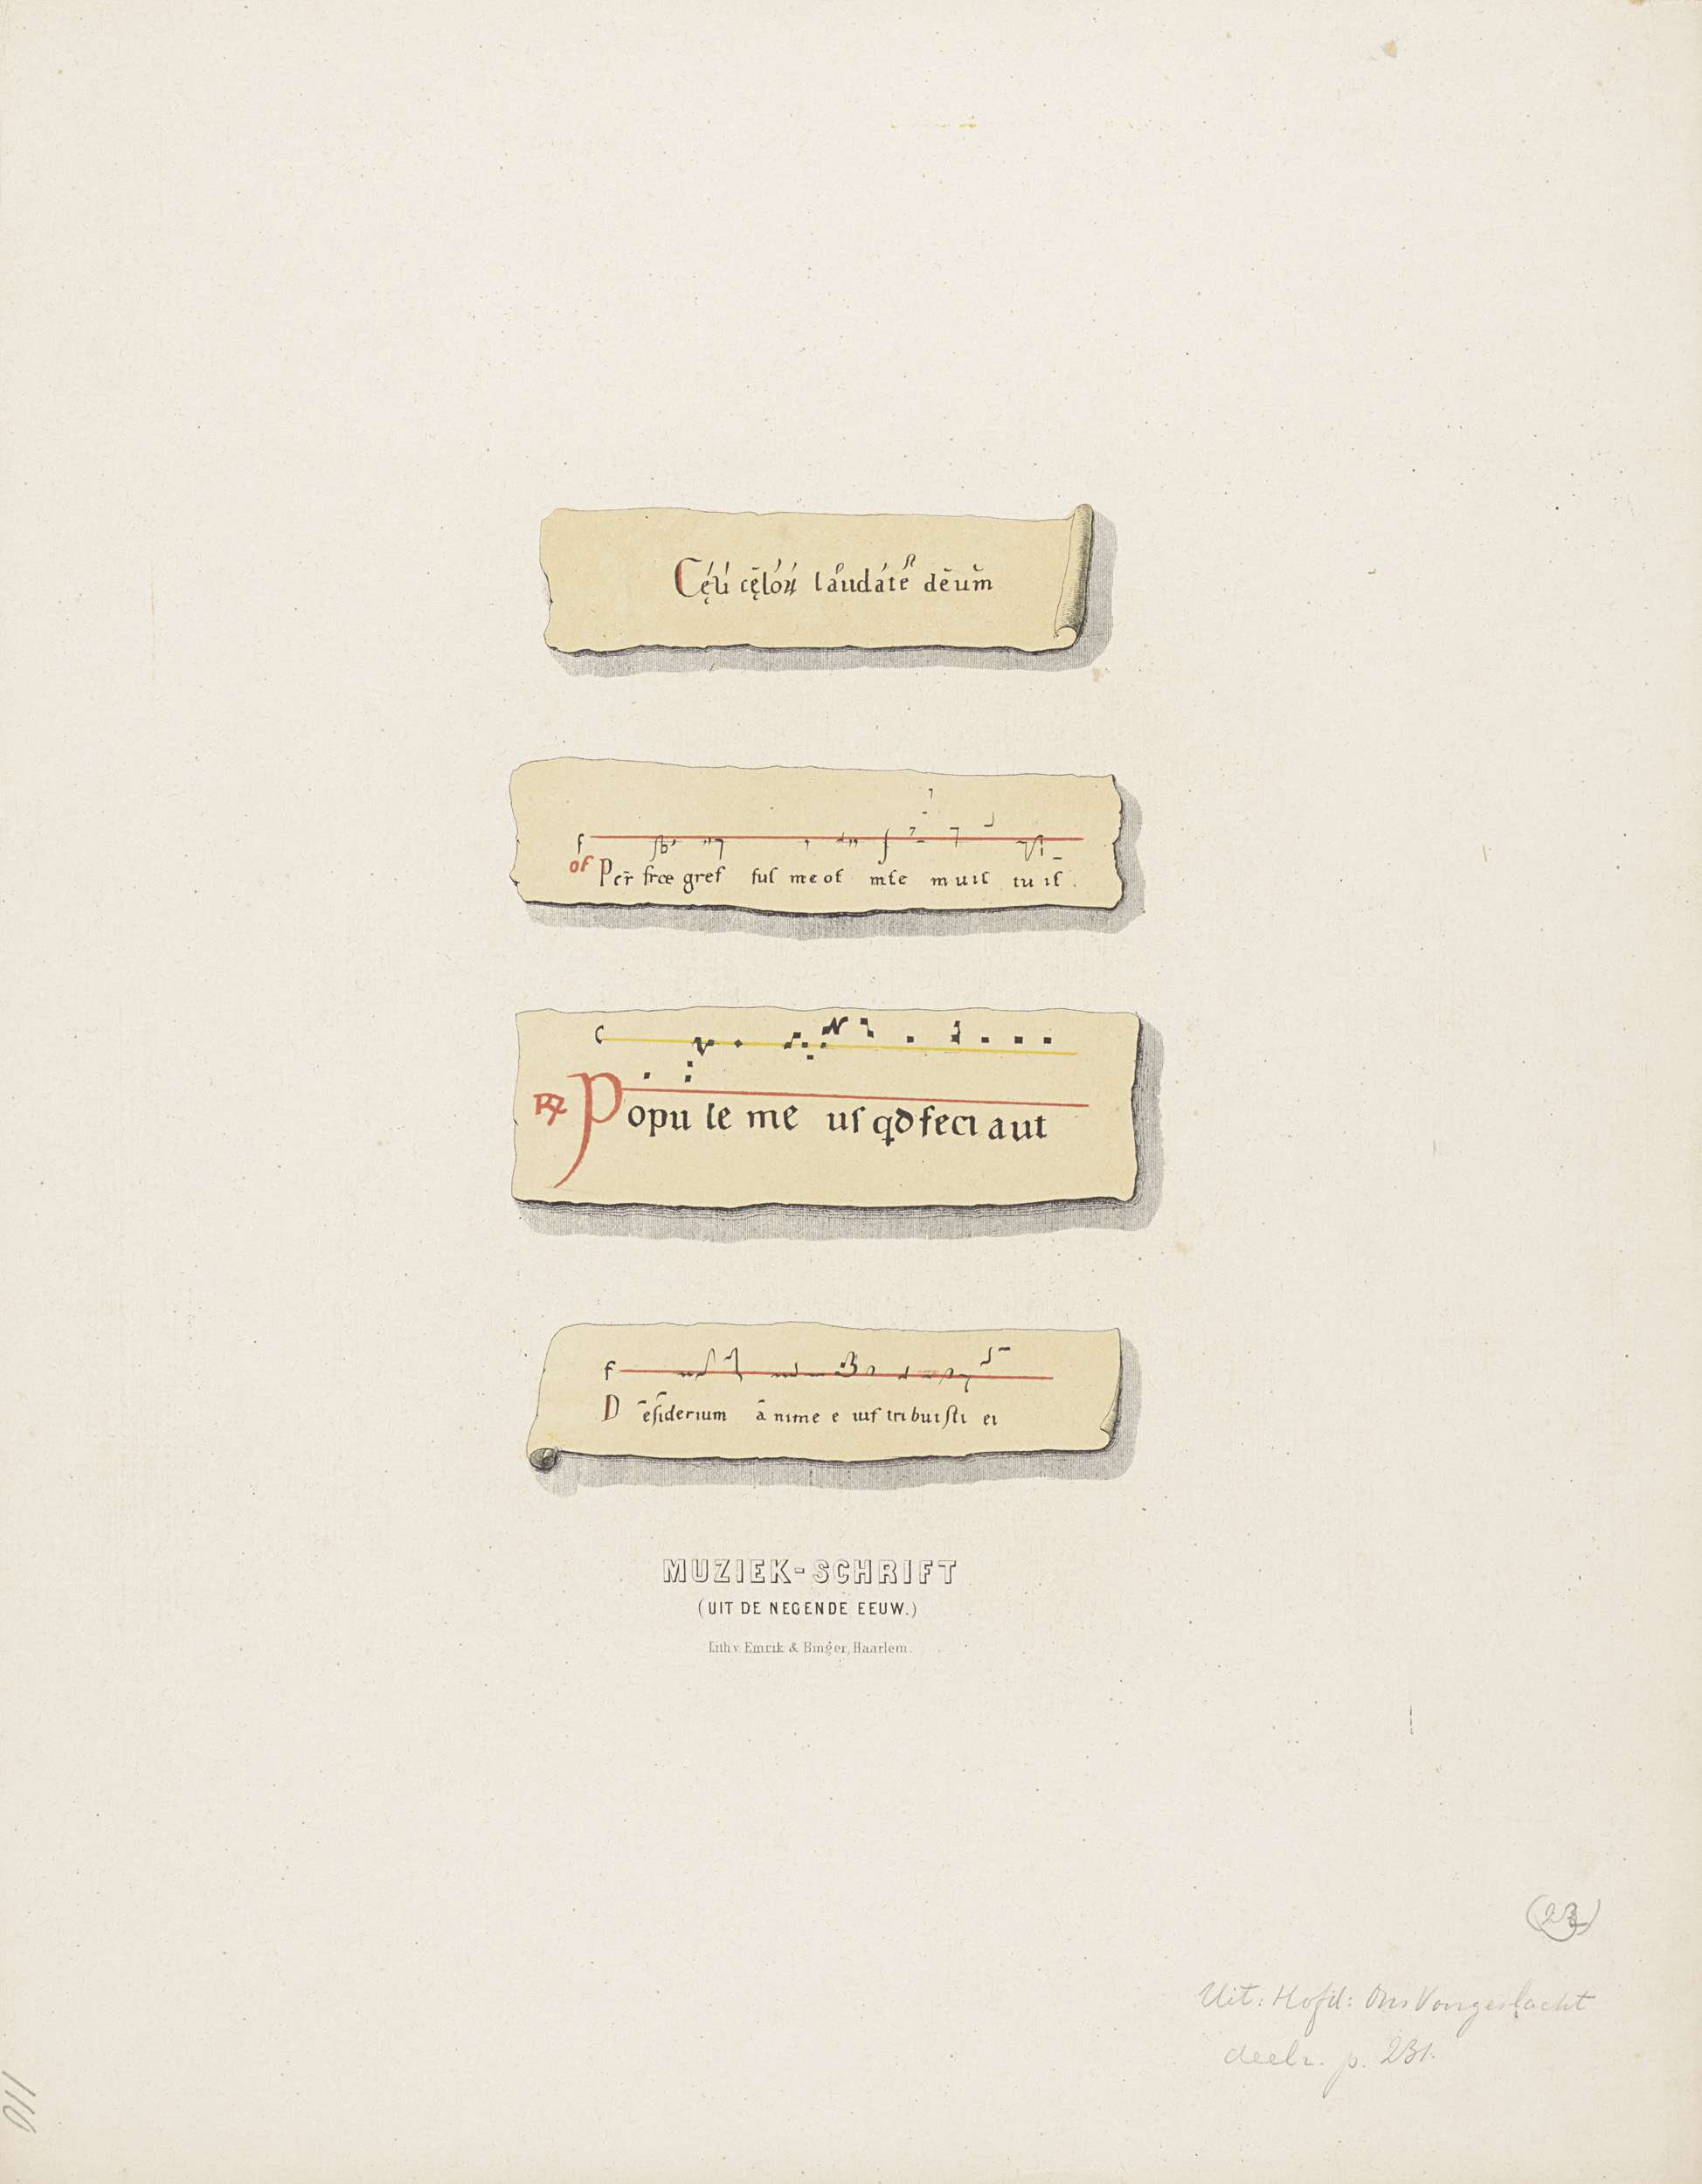 Cęli cęloꝝ laudate deum
f
of Per̄ fice greſ ſuſ me oſ in ſe muiſ tu iſ.
C
℟ Popu le me uſ qd feci aut
f
Desiderium a nime e iuſ tri buiſti ei
MUZIEK-SCHRIFT
(UIT DE NEGENDE EEUW.)
Lith v. Emrik & Binger, Haarlem.
Uit: Hofd: Ons Voorgeslacht
p. 231.
110